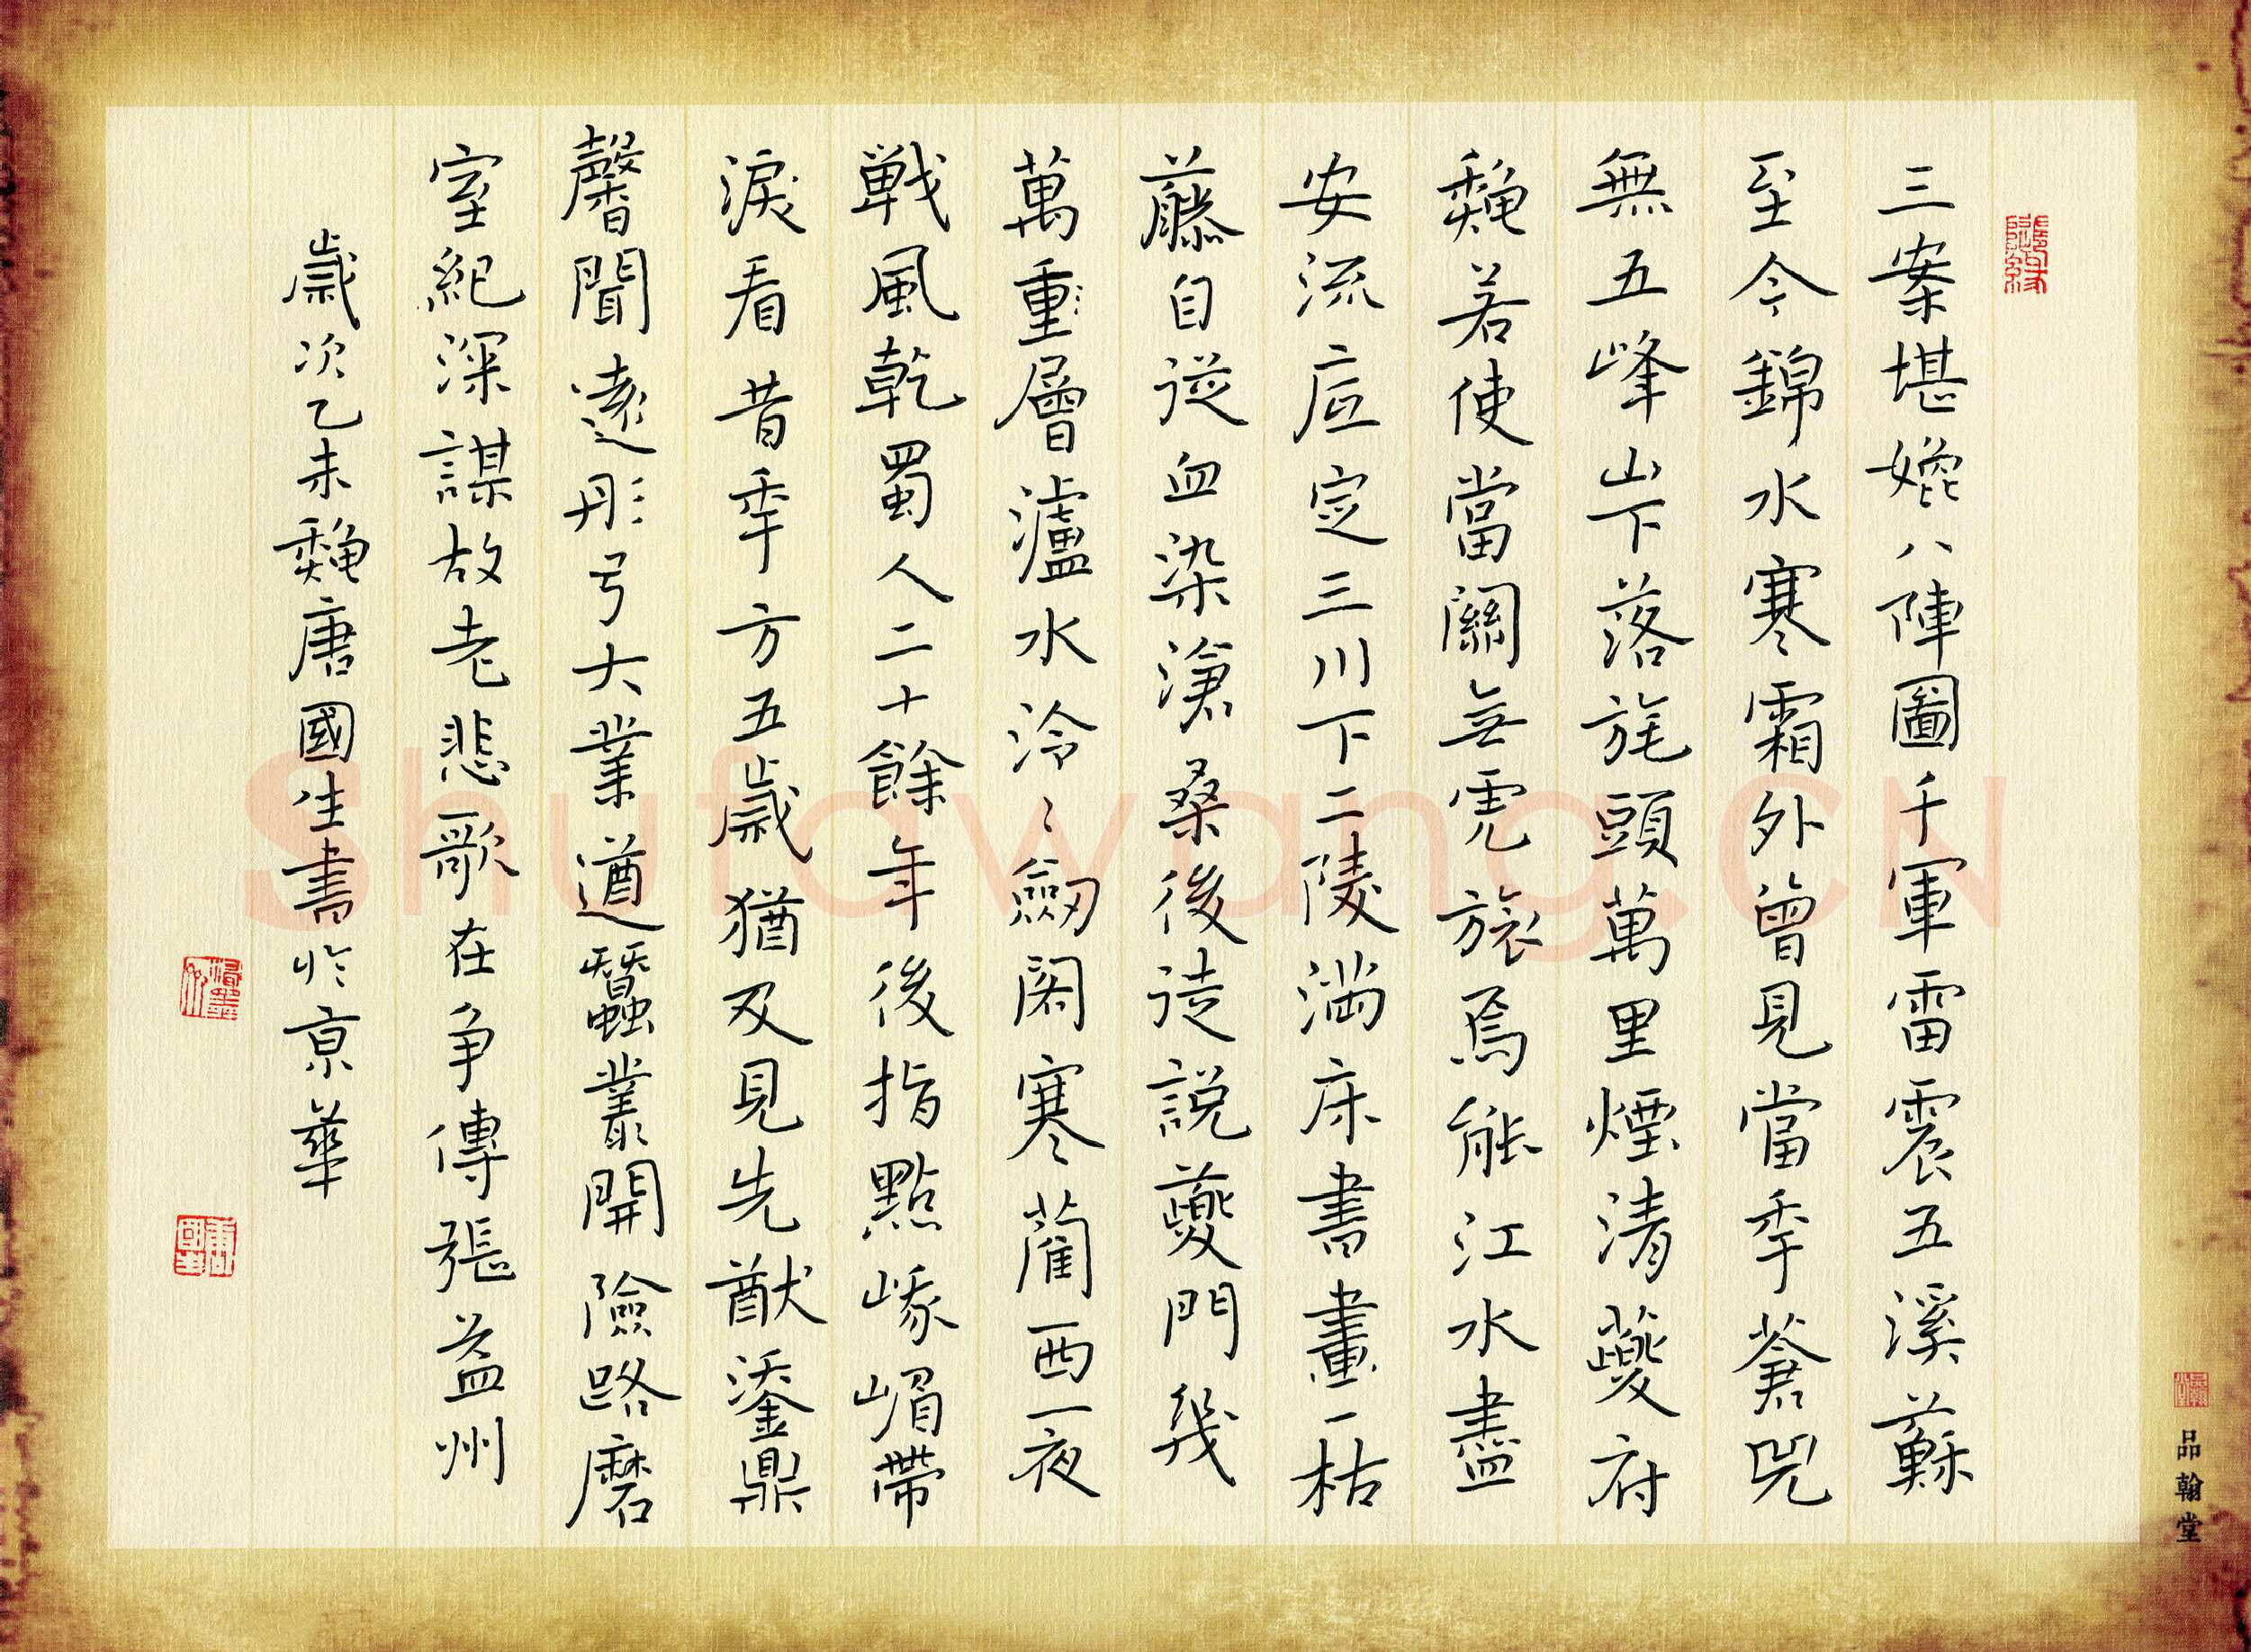 三案堪媲八陣圖千軍雷震五溪蘇
至今錦水寒霜外曾見當秊蒼兕
無五峰山下落旄頭萬里煙清夔府
龝若使當關無虎旅焉能江水盡
安流底定三川下二陵滿床書畫一枯
藤自從血染滄桑後徒說夔門幾
萬重層瀘水泠〻劒閣寒藺西一夜
戰風乾蜀人二十餘年後指點峨嵋帶
淚看昔秊方五歲猶及見先猷鋈鼎
馨聞遠彤弓大業遒蠶叢開險路磨
室紀深謀故老悲歌在爭傳張益州
歲次乙未龝唐國生書於京華
品翰堂
Shufawang.CN